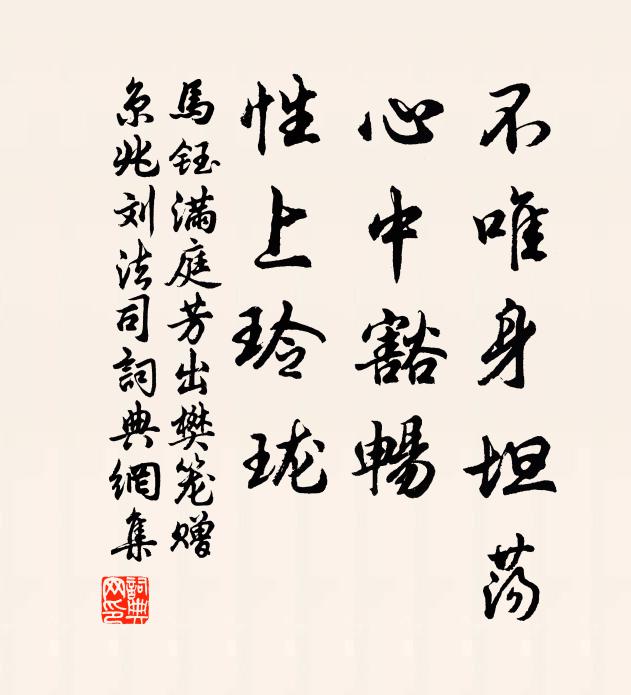 不唯身坦荡
心中豁暢
性上玲珑
馬鈺满庭芳出樊笼赠
京兆刘法司詞典網集
詞典网印